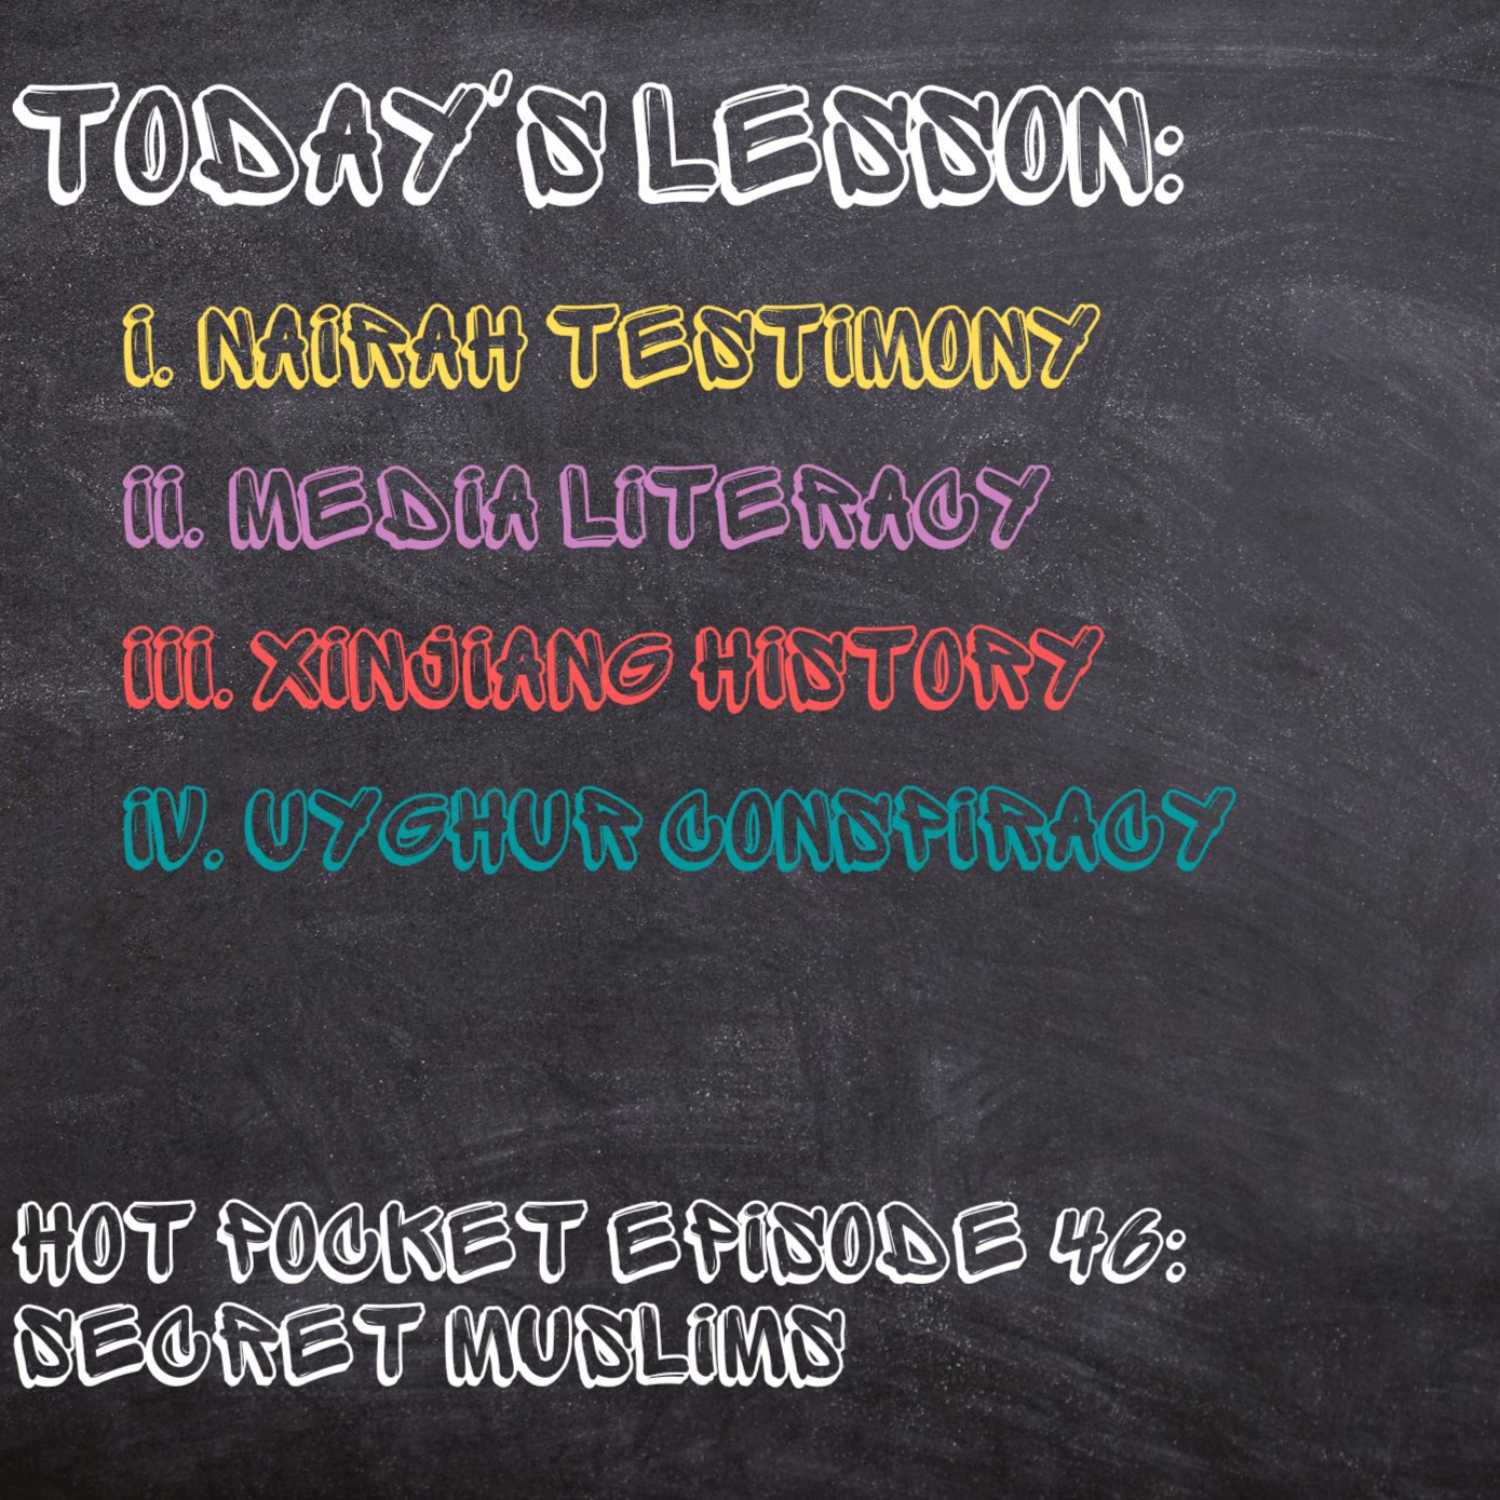 TODAY'S LESSON:
i. NAIRAH TESTIMONY
ii. MEDIA LITERACY
iii. XINJIANG HISTORY
iv. UYGHUR CONSPIRACY
HOT POCKET EPISODE 46:
SECRET MUSLIMS